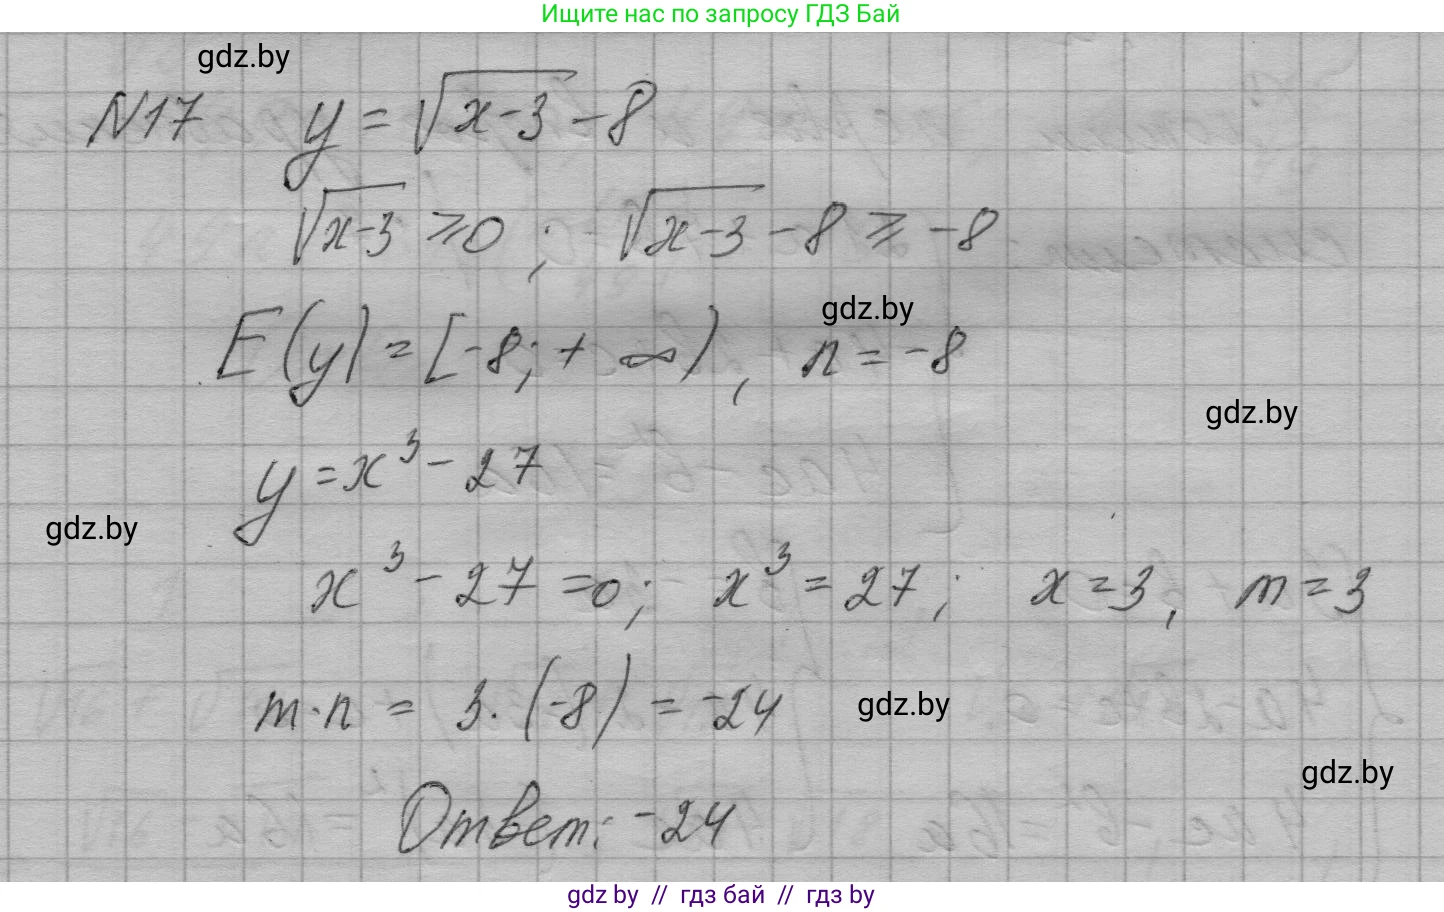 Ищите нас по запросу ГДЗ Бай
gdz.by
N17 y = √(x-3) - 8
√(x-3) ≥ 0 ; √(x-3) - 8 ≥ -8
gdz.by
E(y) = [-8; +∞), n = -8
gdz.by
y = x³ - 27
gdz.by
x³ - 27 = 0; x³ = 27; x = 3, m = 3
m·n = 3·(-8) = -24
gdz.by
gdz.by
Ответ: -24
gdz by // гдз бай // гдз by